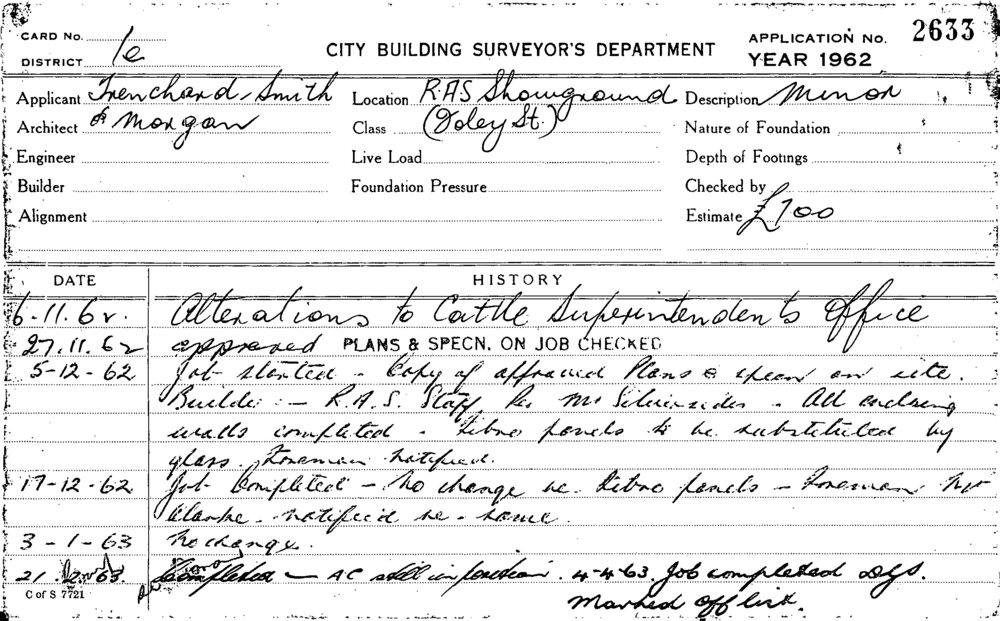 CARD No.
DISTRICT 1e
CITY BUILDING SURVEYOR'S DEPARTMENT
APPLICATION No. 2633
YEAR 1962
Applicant Trenchard-Smith Location RAS Showground Description Minor
Architect & Morgan Class (Foley St.) Nature of Foundation
Engineer Live Load Depth of Footings
Builder Foundation Pressure Checked by
Alignment Estimate £700
DATE HISTORY
6.11.62. Alterations to Cattle Superintendents Office
27.11.62 approved PLANS & SPECN. ON JOB CHECKED
5-12-62 Job started - Copy of approved Plans & specn on site.
Builder:- R.A.S. Staff Per Mr Silversides - All enclosing
walls completed - Fibro panels to be substituted by
glass. Foreman notified.
17-12-62 Job Completed - No change re. Fibro panels - Foreman Mr
Clarke - notified re - same.
3-1-63 No change.
21. 2.63 Completed - AC still in position. 4-4-63. Job completed
Marked off list.
C of S 7721